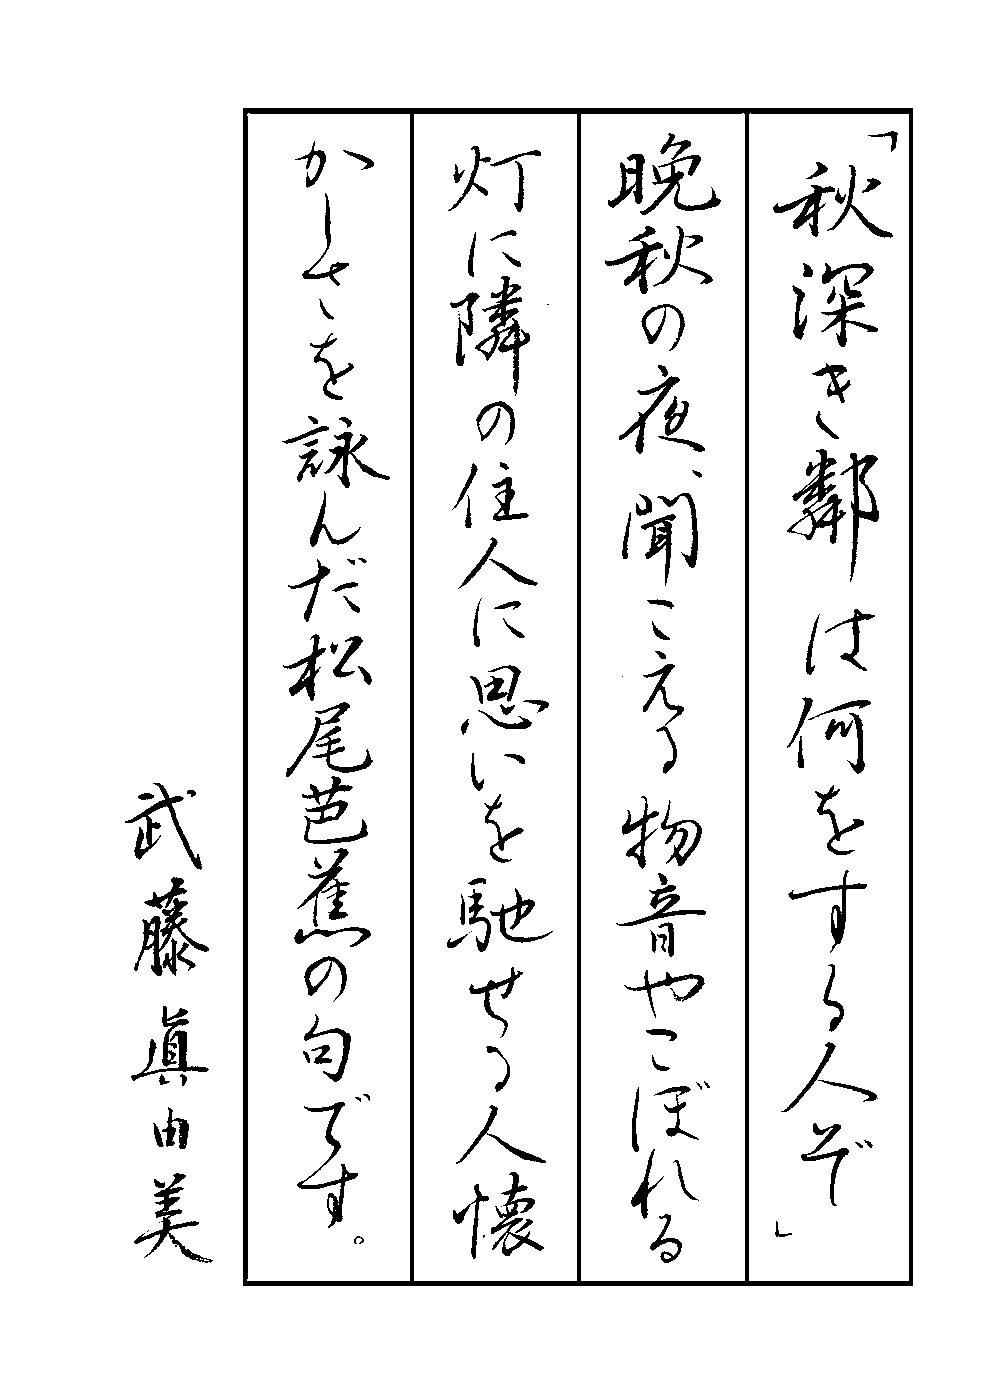 「秋深き鄰は何をする人ぞ」
晩秋の夜、聞こえる物音やこぼれる
灯に隣の住人に思いを馳せる人懐
かしさを詠んだ松尾芭蕉の句です。
武藤眞由美